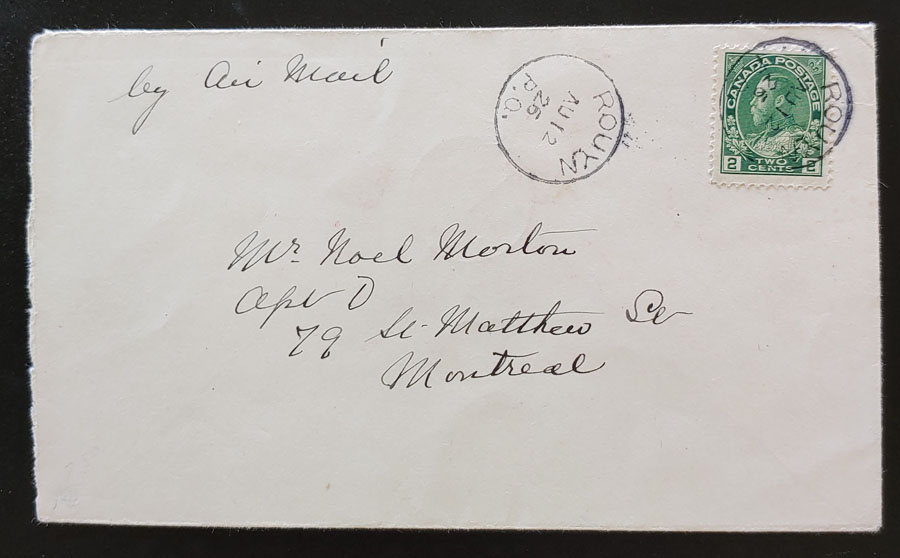 by Air Mail
ROUYN
AU 12
26
P.Q.
CANADA POSTAGE
2 TWO CENTS 2
ROUYN
Mr. Noel Morton
Apt D
79 St. Matthew St
Montreal